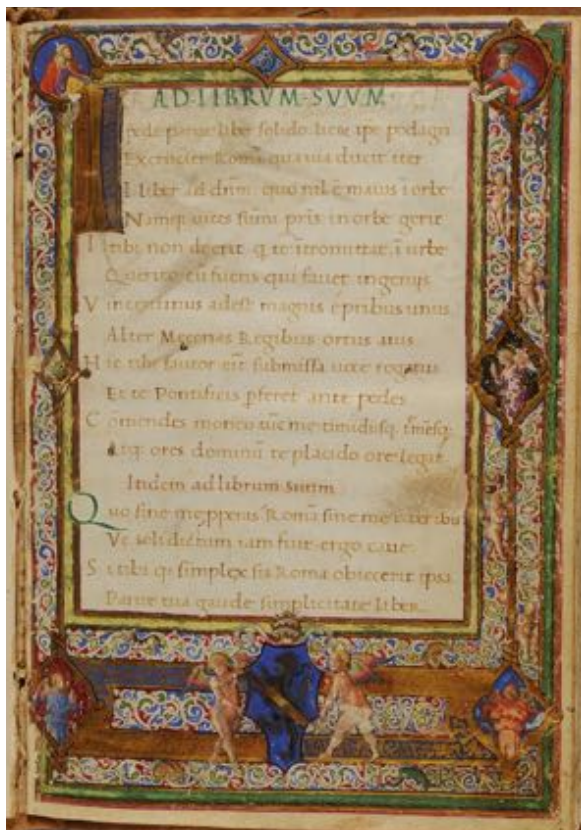 AD·LIBRVM·SVVM·
I pede parue liber solido licet ipe podagra
Excrucier Romā qua uia ducit iter
I liber ad dnm: quo nil ē maius ī orbe
Namq; uices sūmi pris in orbe gerit
I tibi non deerit q te ītromittat ī urbe
Querito eū fueris qui fauet ingenijs
V incentinus adest magnis ē pribus unus
Alter Mecenas Regibus ortus auis
H ic tibi fautor erit submissa uoce rogatus
Et te Pontificis pferet ante pedes
C ōmendes moneo me timidusq;
Atq; ores dominū te placido ore legat
Itidem ad librum suum
Quo sine me pperas Romā sine me
Ve soli dictum iam fuit ergo caue
S i tibi qp simplex sis Roma obiecerit ipsa
Parue tua gaude simplicitate liber